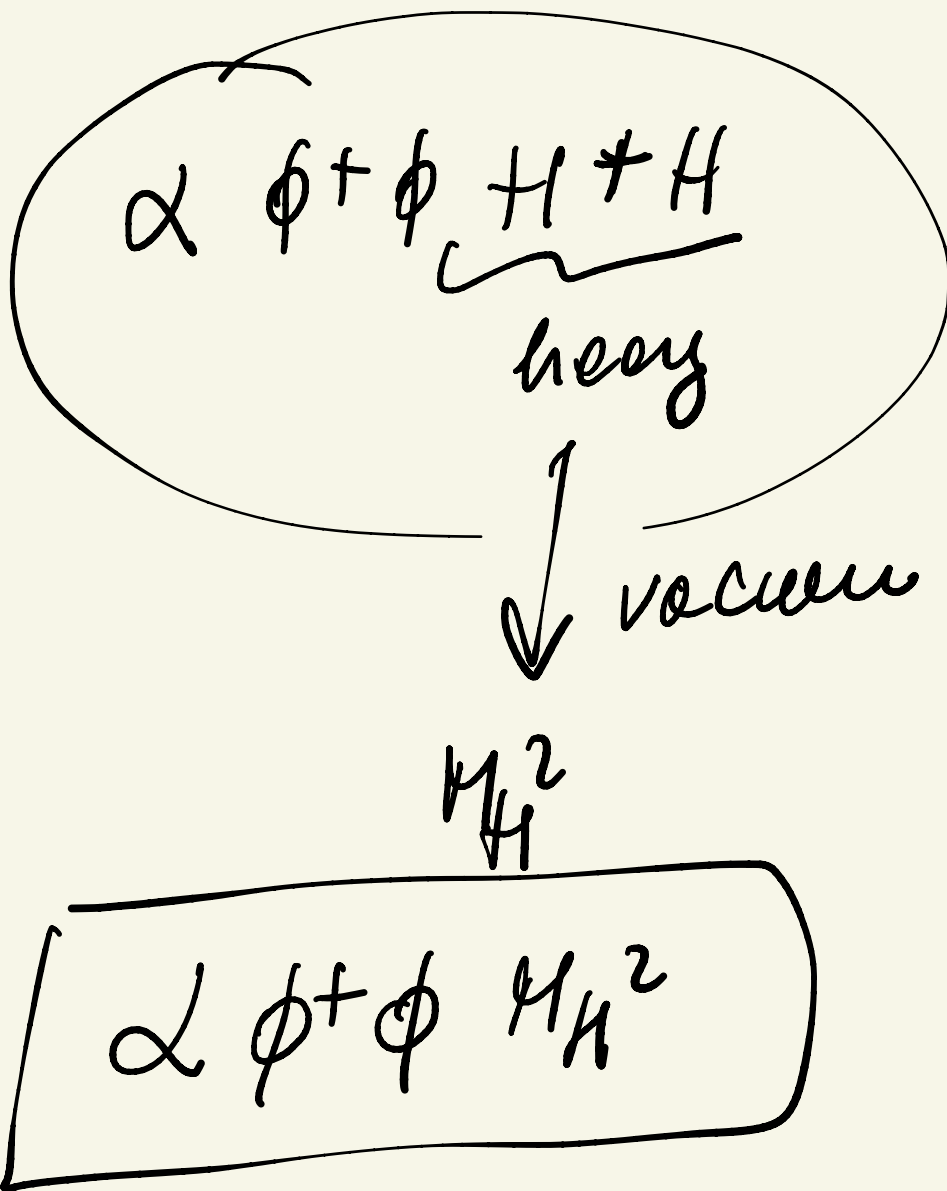 α ϕ⁺ ϕ H⁺ H
heavy
vacuum
M_H²
α ϕ⁺ ϕ M_H²